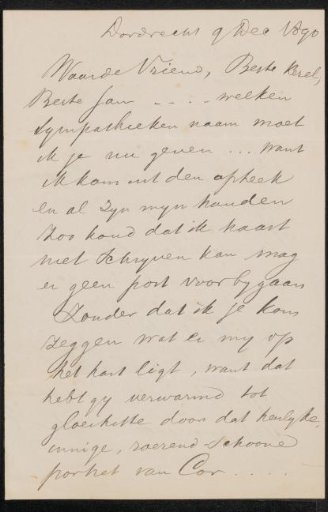 Dordrecht 9 Dec 1890
Waarde Vriend, Beste Kerel,
Beste Jan .... welken
sympathieken naam moet
ik je nu geven ... want
ik kom uit den
en al zijn myn handen
zoo koud dat ik haast
niet schryven kan mag
er geen post voorbygaan
zonder dat ik je kom
zeggen wat er my op
het hart ligt, want dat
hebt gy verwarmd tot
gloeihitte door dat heerlyke,
innige, roerend schoone
portret van Cor ....